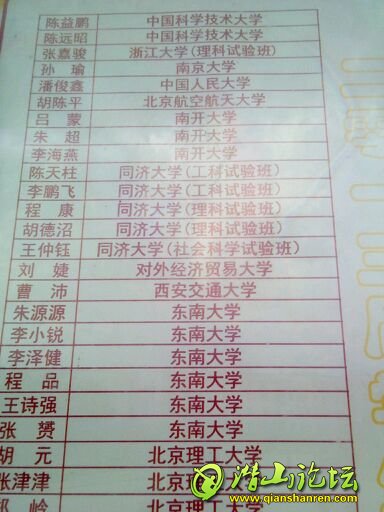 陈益鹏 中国科学技术大学
陈远昭 中国科学技术大学
张嘉骏 浙江大学(理科试验班)
孙 瑜 南京大学
潘俊鑫 中国人民大学
胡陈平 北京航空航天大学
吕 蒙 南开大学
朱 超 南开大学
李海燕 南开大学
陈天柱 同济大学(工科试验班)
李鹏飞 同济大学(工科试验班)
程 康 同济大学(理科试验班)
胡德沼 同济大学(理科试验班)
王仲钰 同济大学(社会科学试验班)
刘 婕 对外经济贸易大学
曹 沛 西安交通大学
朱源源 东南大学
李小锐 东南大学
李泽健 东南大学
程 品 东南大学
王诗强 东南大学
张 赟 东南大学
胡 元 北京理工大学
张津津 北京理
岭 北京理工大
潜山论坛
www.qianshanren.com